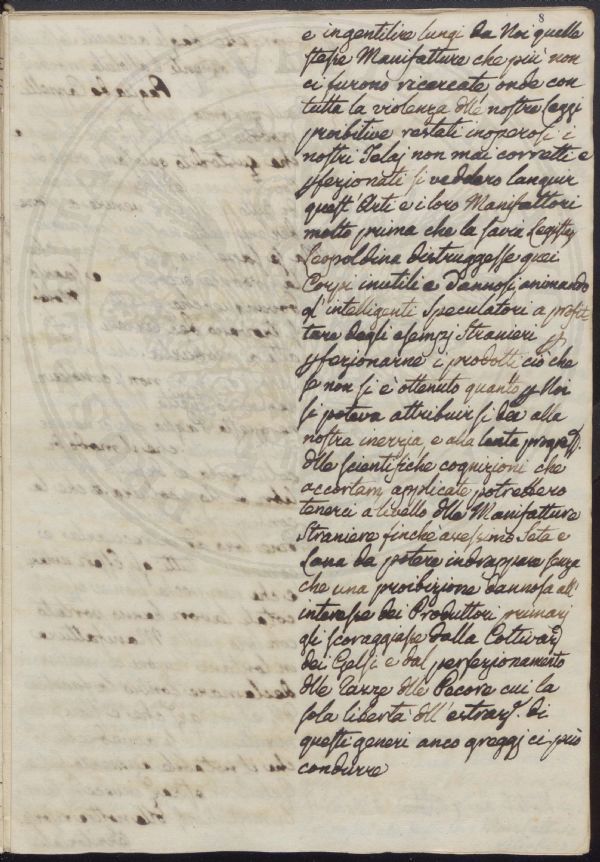 8
e ingentilire lungi da Noi quelle
stesse Manifatture che più non
ci furono ricercate onde con
tutta la violenza dlle nostre Leggi
proibitive restati inoperosi i
nostri Telaj non mai corretti e
pfezionati si veddero languir
quest'Arti e i loro Manifattori
molto prima che la savia Legisl
Leopoldina distruggesse quei
Corpi inutili e dannosi animando
gl'intelligenti Speculatori a profit
tare degli esempj Stranieri p
pfezionarne i prodotti ciò che
se non si è ottenuto quanto p Noi
si poteva attribuir si dee alla
nostra inerzia, e alla lenta progress.
dlle scientifiche cognizioni che
accortam applicate potrebbero
tenerci a livello dlle Manifatture
Straniere finchè avessimo Seta e
Lana da potere indrappare senza
che una proibizione dannosa all'
interesse dei Produttori primarj
gli scoraggiasse dalla Coltivaz
dei Gelsi e dal perfezionamento
dlle Razze dlle Pecore cui la
sola libertà dll'estraz. di
questi generi anco greggj ci può
condurre